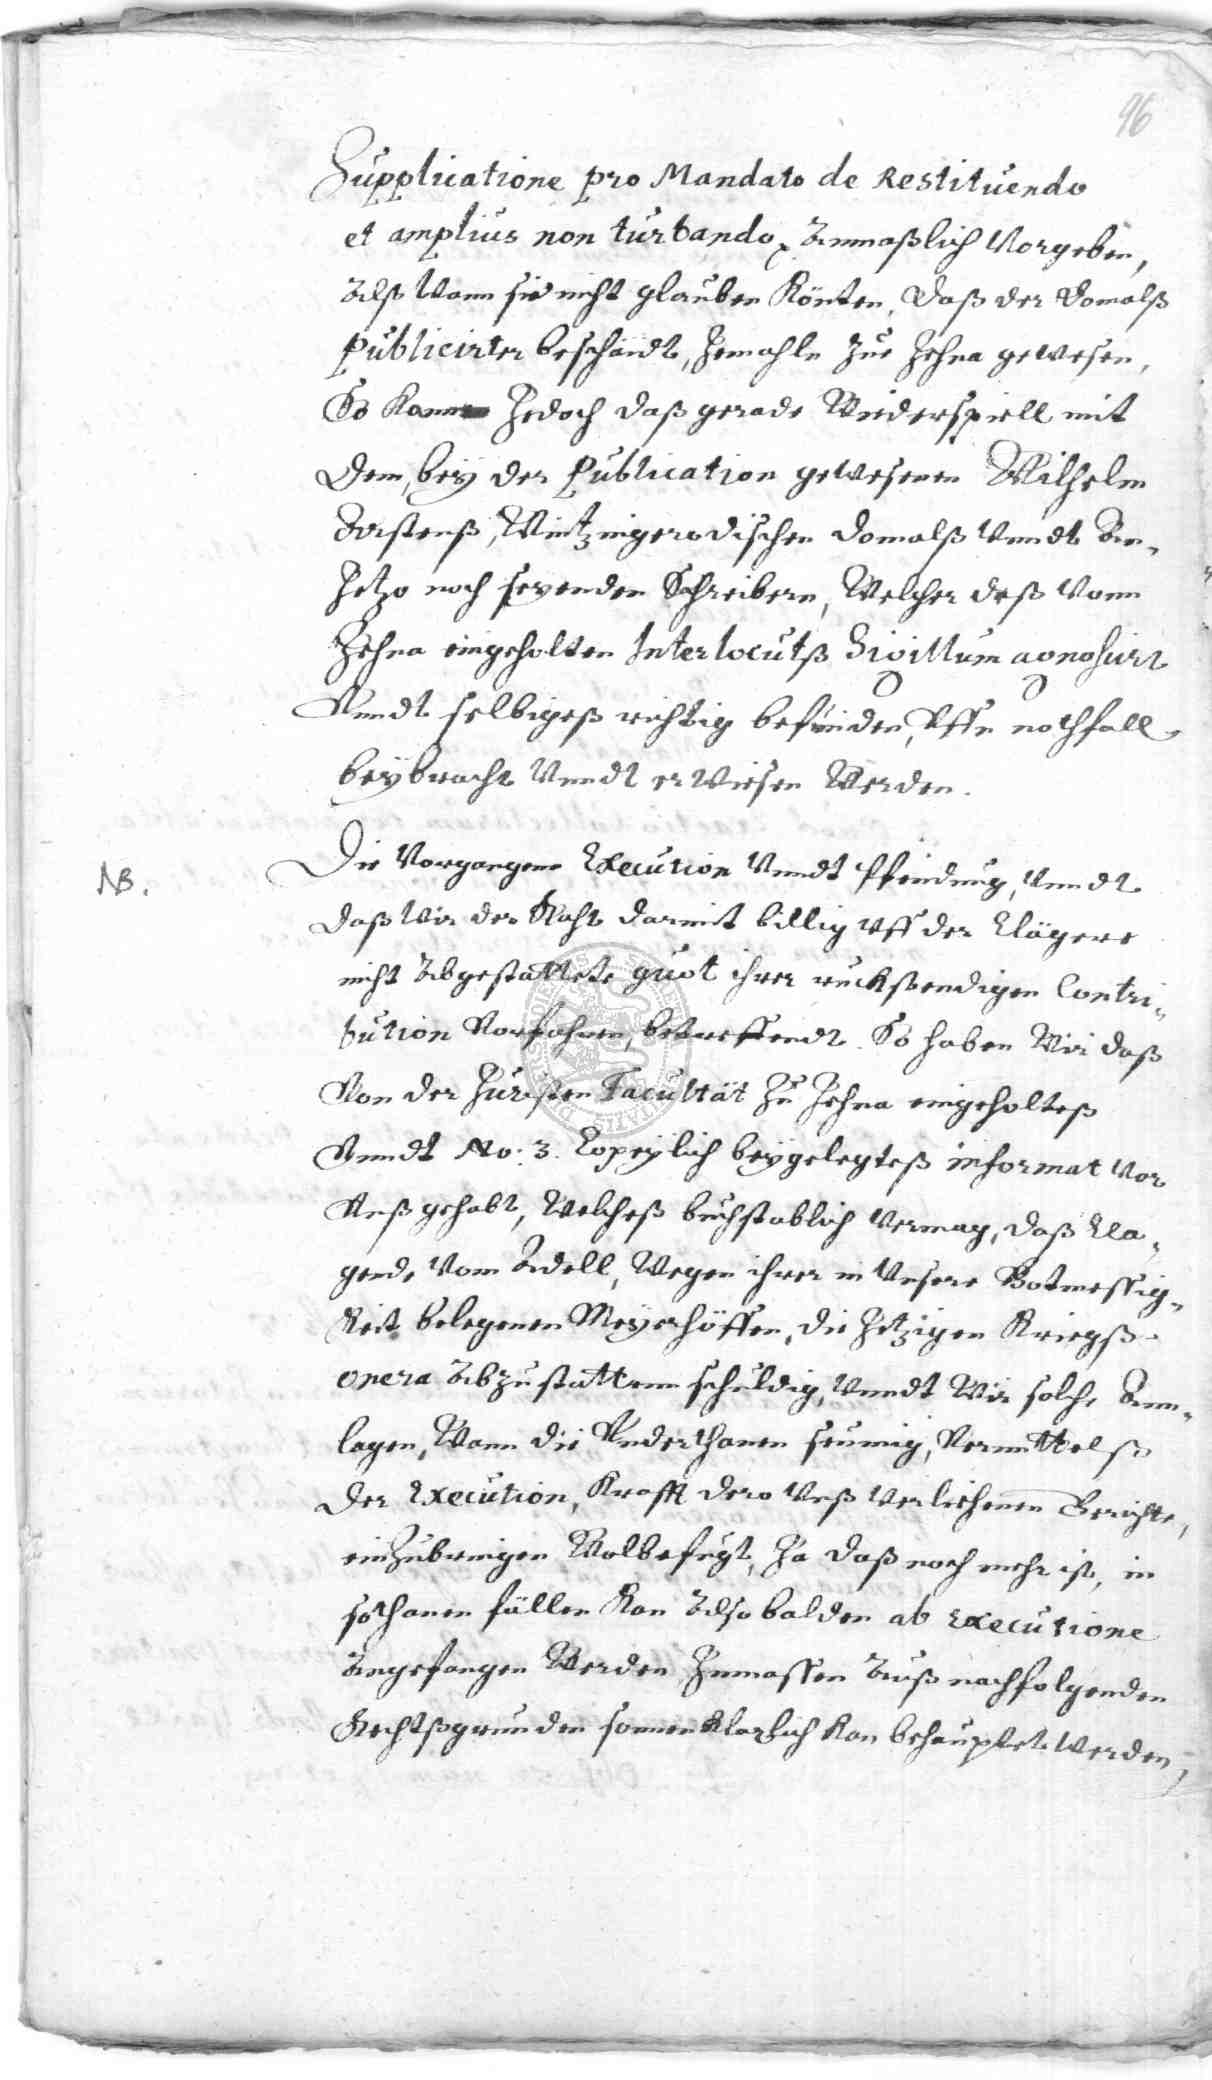 96
Supplicatione pro Mandato de Restituendo
et amplius non turbando, Anmaßlich Vorgeben,
Alß Wann sie nicht glauben Könten, Daß der Domalß
Publicirter bescheidt, Jemahln Zue Jehna gewesen,
So Kann Jedoch daß gerade Wiederspiell mit
Dem, bey der Publication gewesenen Wilhelm
Wintzingerodischen domalß Vnndt An-
Jetzo noch seyenden Schreibern, Welcher deß Vonn
Jehna eingeholten Interlocutß Sigillum agnoscirt
Vnndt selbigeß richtig befunden, Vffn nothfall
beybracht Vnndt erWiesen Werden.
NB.
Die Vorgangene Execution Vnndt Pfendung, Vnndt
daß Wir der Raht darmit billig Vff der Klägere
nicht Abgestattete quot ihrer ruckstendigen Contri-
bution Vorfahren, betreffendt. So haben Wir daß
Von der Juristen Facultät Zu Jehna eingeholteß
Vnndt No: 3. Copeylich beygelegteß informat Vor
Vnß gehabt, Welcheß buchstablich Vermag, daß Kla-
gende Vom Adell, Wegen ihrer in Vnsere Botmessig-
Keit belegenen Meyerhöffen, die Jetzigen Kriegß-
onera Abzustattenn schuldig, Vnndt Wir solche Ann-
lagen, Wann die Vnderthanen seumig, Vermittelß
Der Execution, Krafft dero Vnß Verliehenen Gerichte,
einZubringen Wolbefugt, Ja daß noch mehr ist, in
sothanen fällen Kan Alsobalden ab Executione
Angefangen Werden, Inmassen Auß nachfolgenden
Rechtßgrunden sonnenKlarlich Kan behauptet Werden,